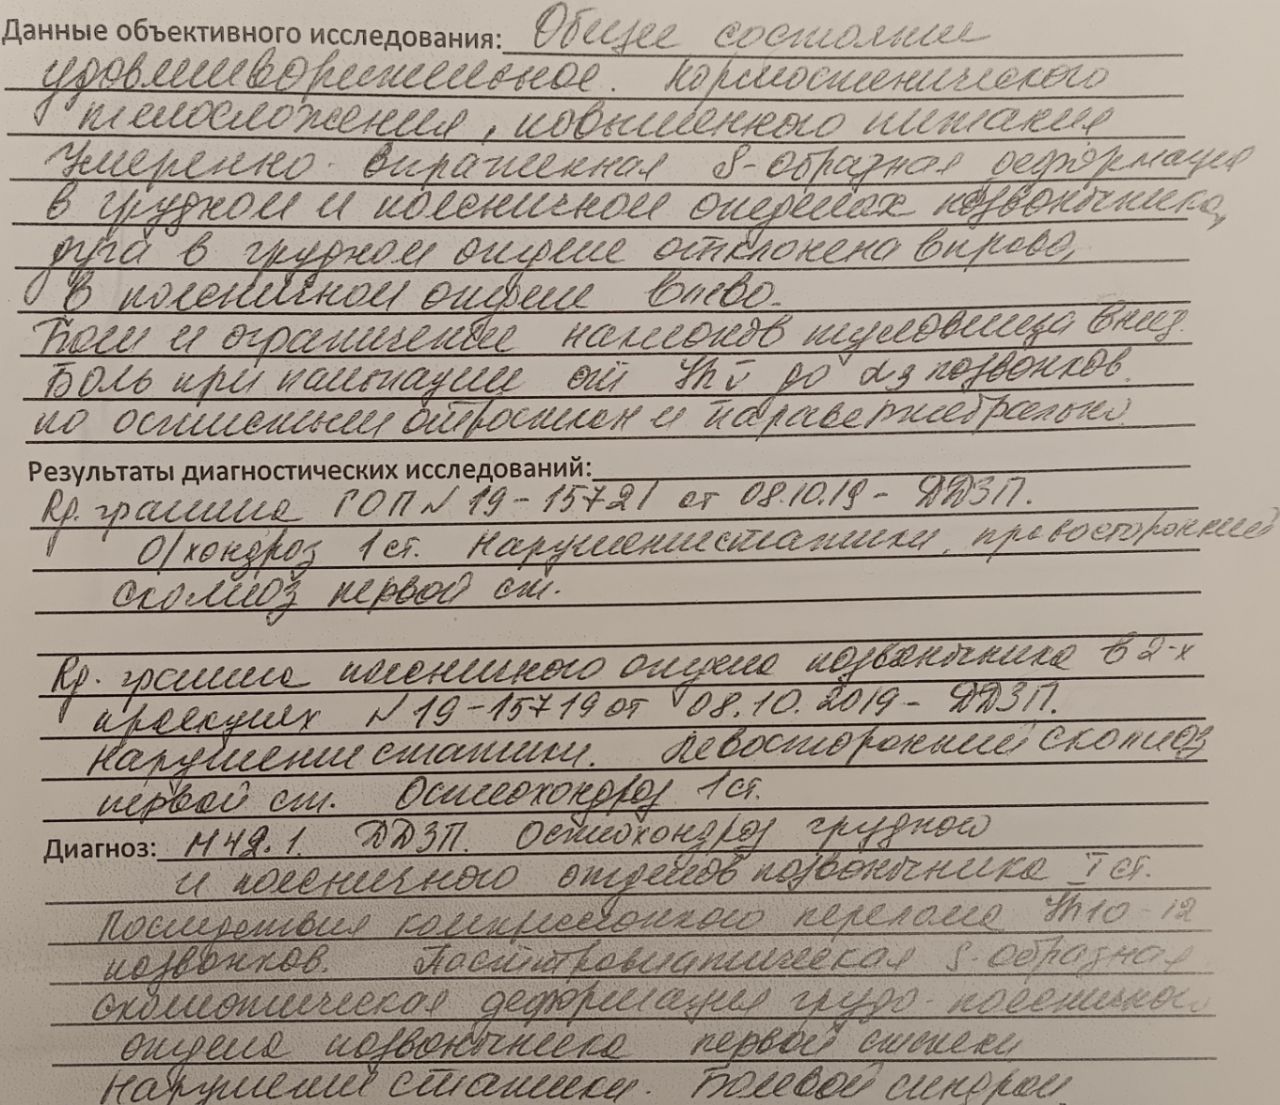 Данные объективного исследования: Общее состояние
удовлетворительное. Нормостенического
телосложения, повышенного питания
Умеренно выраженная S-образная деформация
в грудном и поясничном отделах позвоночника,
дуга в грудном отделе отклонена вправо,
в поясничном отделе влево.
Боли и ограничение наклонов туловища вниз.
Боль при пальпации от Th V до L3 позвонков
по остистым отросткам и паравертебрально.
Результаты диагностических исследований:
Rр. грамма ГОП № 19-15721 от 08.10.19 - ДДЗП.
О/хондроз 1 ст. Нарушение статики, правосторонний
сколиоз первой ст.
Rр. грамма поясничного отдела позвоночника в 2-х
проекциях № 19-15719 от 08.10.2019 - ДДЗП.
Нарушение статики. Левосторонний сколиоз
первой ст. Остеохондроз 1 ст.
Диагноз: М42.1. ДДЗП. Остеохондроз грудного
и поясничного отделов позвоночника I ст.
Последствия компрессионного перелома Th10-12
позвонков. Посттравматическая S-образная
сколиотическая деформация грудо-поясничного
отдела позвоночника первой степени
Нарушение статики. Болевой синдром.